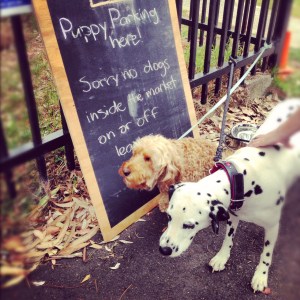 Puppy Parking
here!
Sorry no dogs
inside the market
on or off